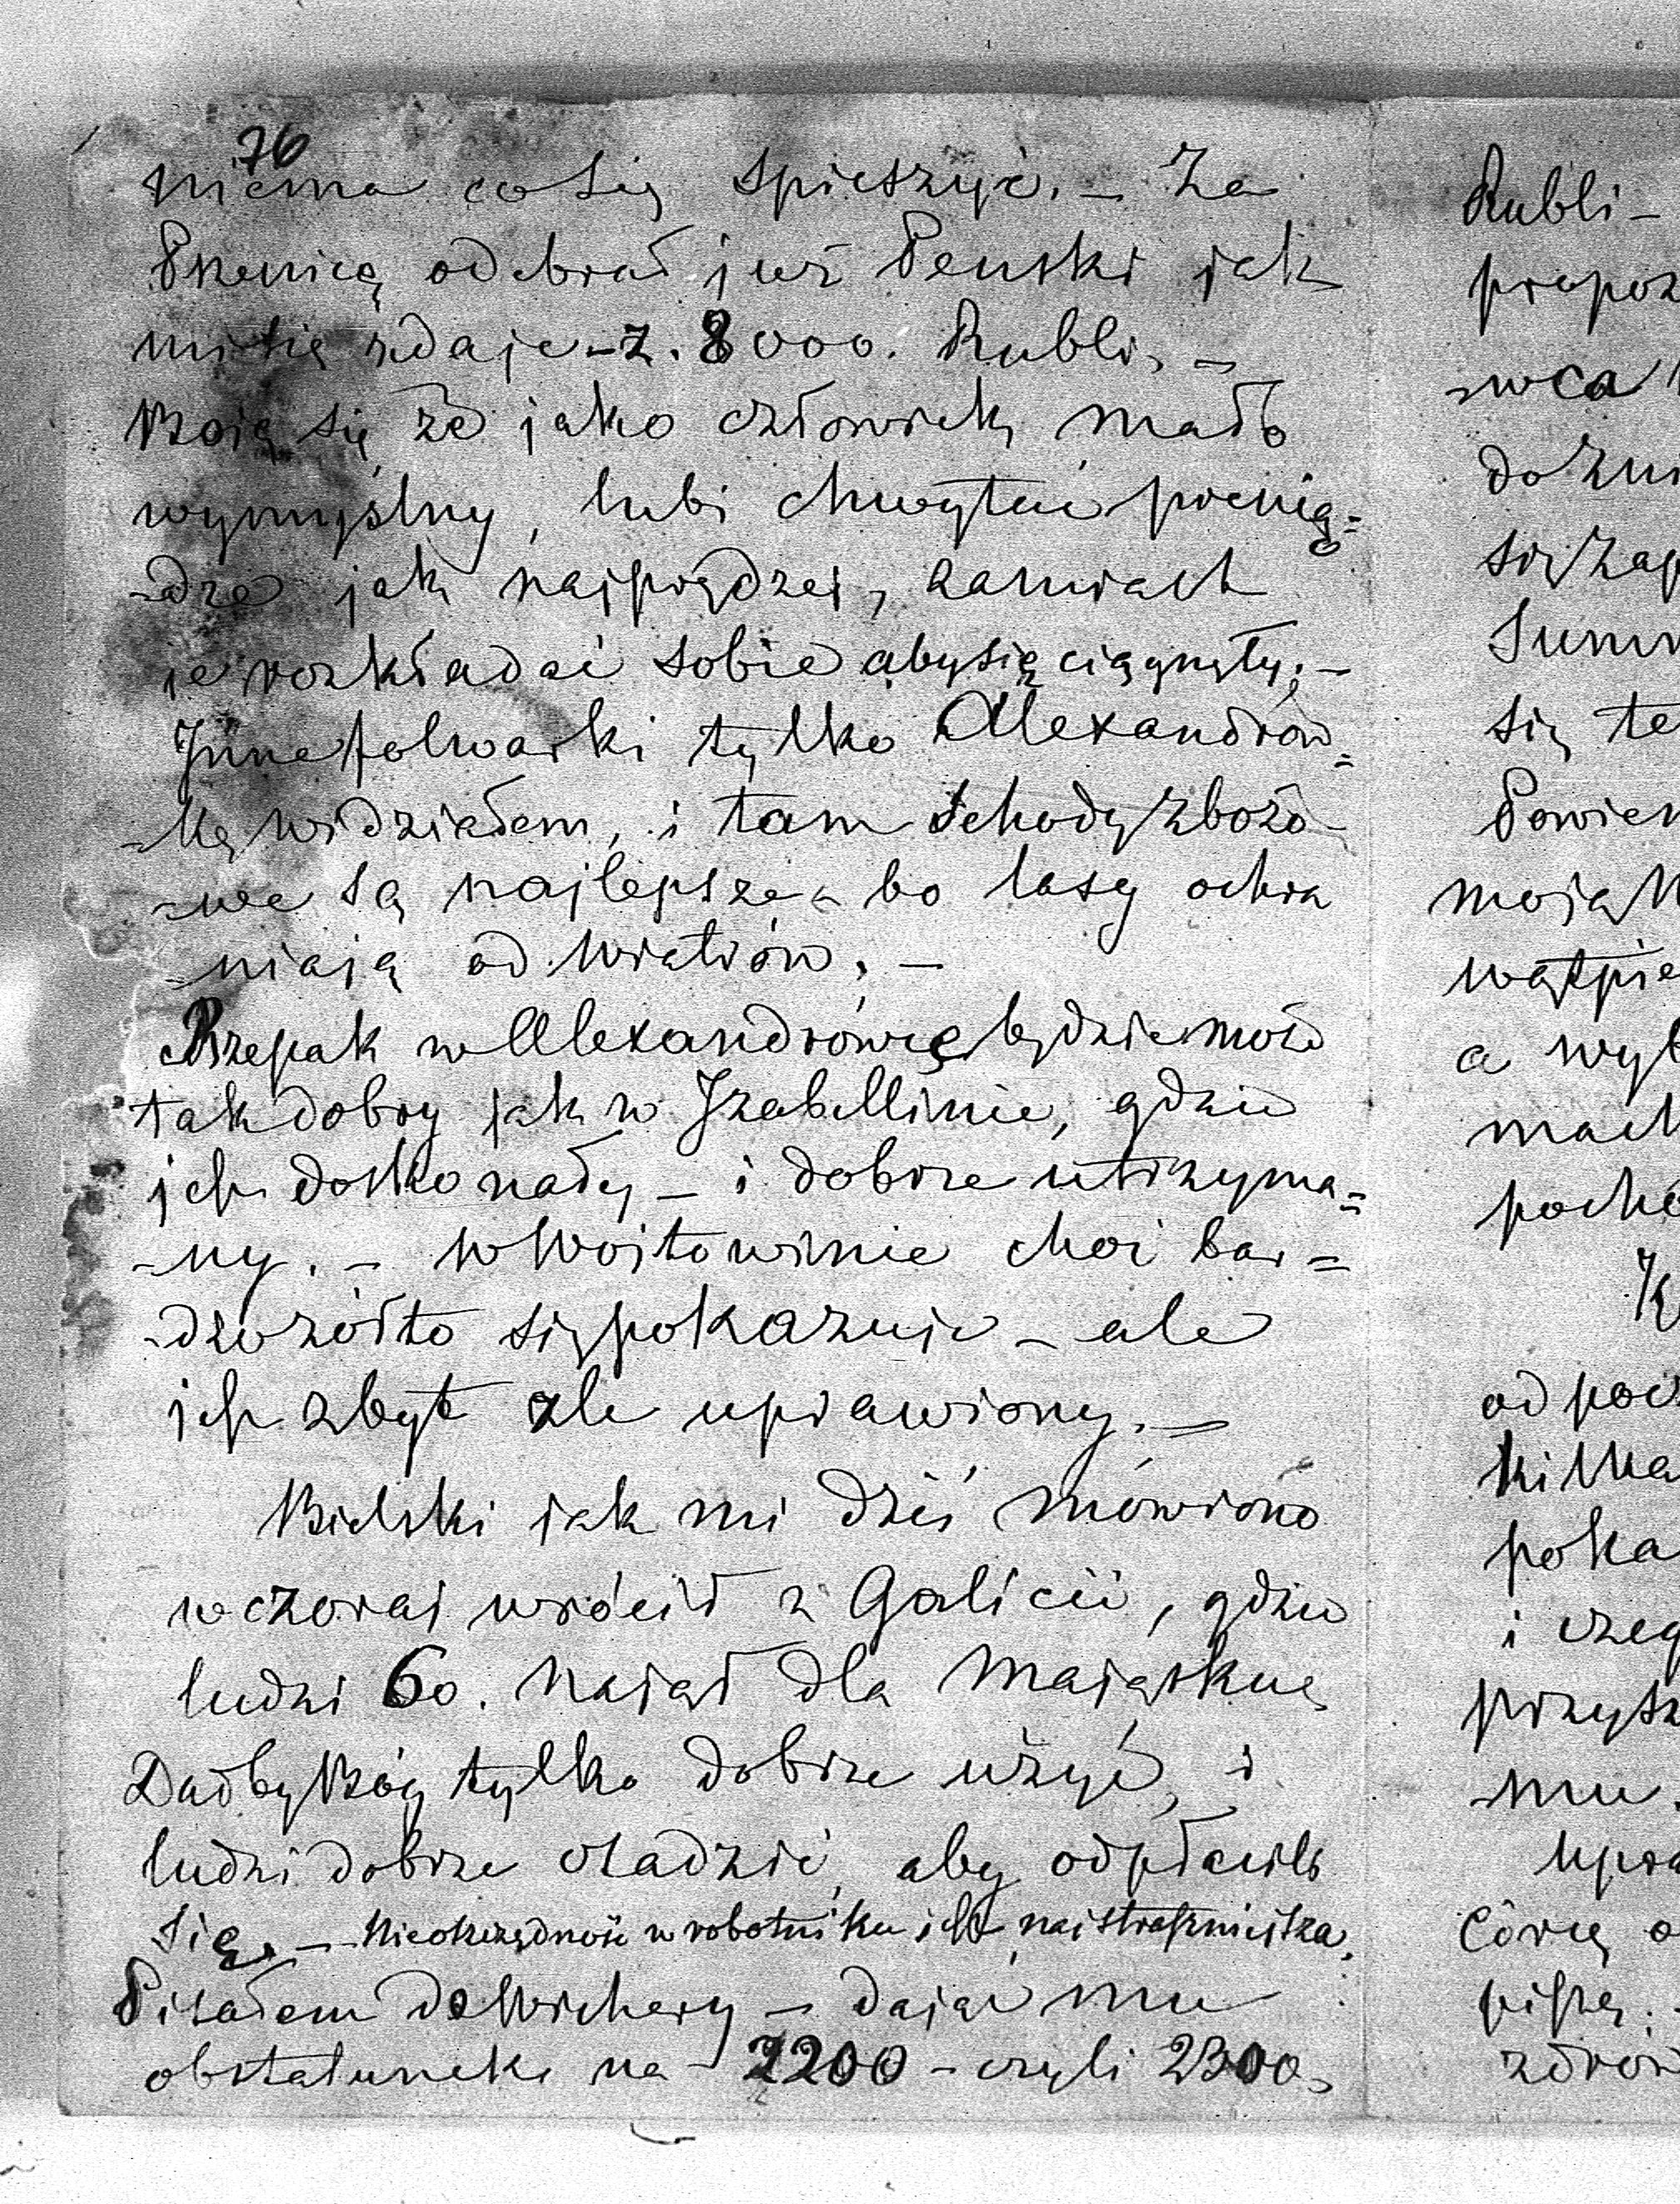 76
niema co się spieszyć. – Za
Pszenicę odebrał już Penski jak
mi się zdaje – z. 8000. Rubli. –
Boię się że jako człowiek mało
wymyślny, lubi chwytać pienią=
-dze jak najprędzej, zamiast
je rozkładać sobie aby się ciągnęły. –
Inne folwarki tylko Alexandrów=
-kę widziałem, i tam schody zbożo-
-we są najlepsze – bo lasy ochra
-niają od wiatrów. –
Rzepak w Alexandrówce będzie może
tak dobry jak w Izabellinie, gdzie
jest doskonały – i dobrze utrzyma=
-ny. – w Woitowinie choć bar=
-dzo żółto się pokazuje – ale
jest zbyt źle uprawiony. –
Bielski jak mi dziś mówiono
wczoraj wrócił z Galicii, gdzie
ludzi 60. najął dla Majątku,
Dałby Bóg tylko dobrze użyć, i
ludzi dobrze osadzić, aby odpłacili
się. – Nieoszczędność w robotniku jest naistraszniejsza,
Pisałem do Wichery – dając mu
obstalunek na – 2200 – czyli 2300,
Rubli –
propoz
-wca
do
się zap
Summ
się te
Powie
moją
wątpie
a wyb
mach
pocho
od pocz
kilka
poka
i czeg
przysz
-mu.
Upra
Córcę o
piszę.
zdrow